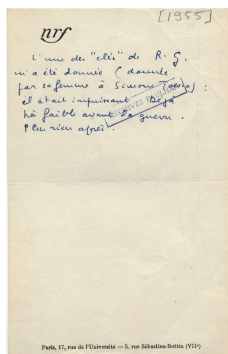 [1955]
nrf
L'une des "clés" de R. G.
m'a été donnée (donnée
par sa femme à Simone
il était impuissant. Déjà
très faible avant la guerre.
Plus rien après.
ARCHIVES PAULHAN
Paris, 17, rue de l'Université — 5, rue Sébastien-Bottin (VIIe)